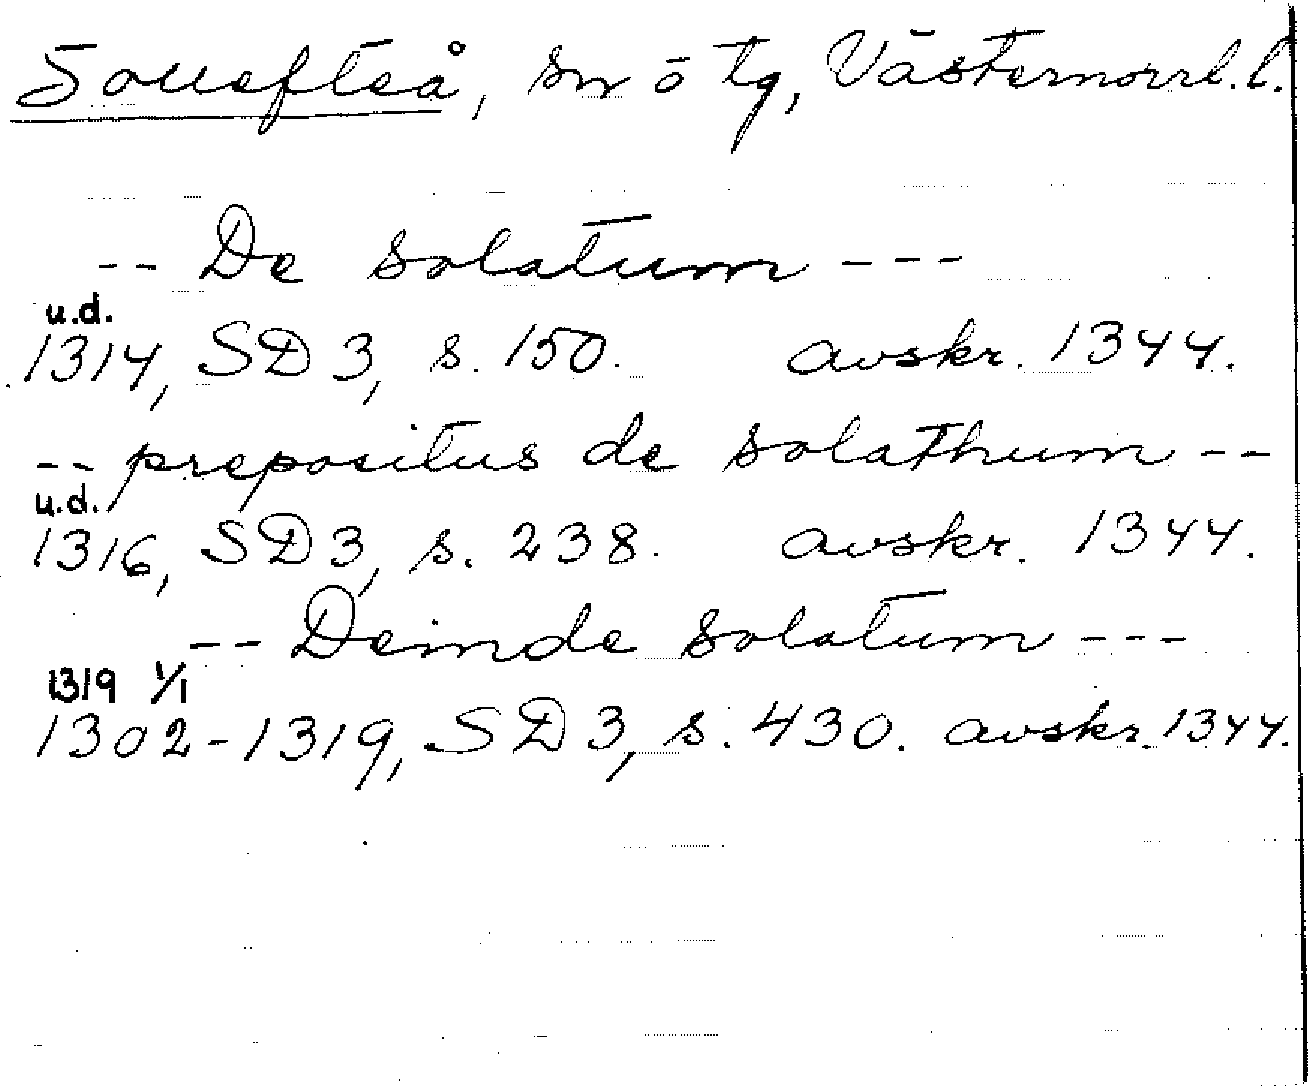 Sollefteå, sn ö tg, Västernorrl. l.
-- De solatum ---
u.d.
1314, SD 3, s. 150. avskr. 1344.
-- prepositus de solathum --
u.d.
1316, SD 3, s. 238. avskr. 1344.
-- Deinde solatum ---
1319 1/1
1302-1319, SD 3, s. 430. avskr. 1344.